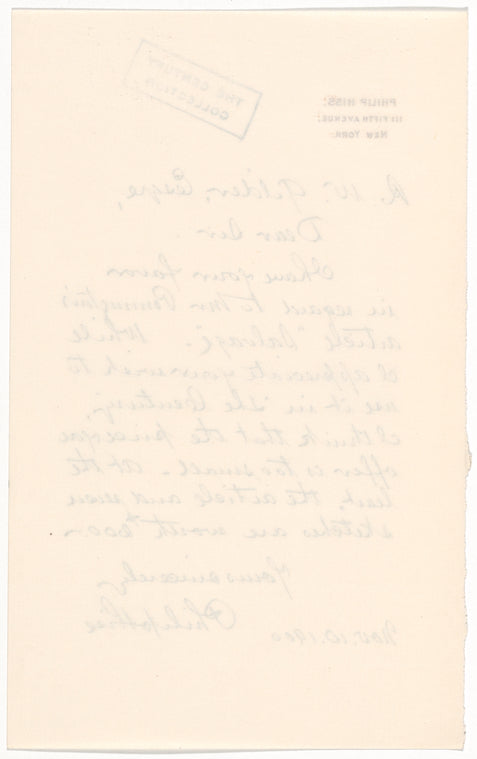 THE CENTURY
COLLECTION
PHILIP HISS:
111 FIFTH AVENUE:
NEW YORK:
R. W. Gilder, Esqre,
Dear Sir
I have your favor
in regard to Mr Pennington's
article "Salvage". While
I appreciate your wish to
use it in the Century,
I think that the price you
offer is too small. At the
least, the article and
sketches are worth
Yours sincerely
Philip Hiss
Nov. 10. 1900